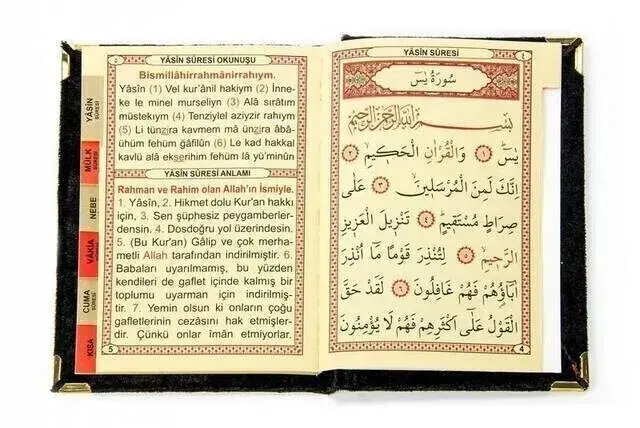 YÂSİN SÛRESİ OKUNUŞU
Bismillâhirrahmânirrahıym.
Yâsîn (1) Vel kur'ânil hakiym (2) İnne-
ke le minel murseliyn (3) Alâ sırâtım
müstekıym (4) Tenziylel aziyzir rahıym
(5) Li tünzira kavmem mâ ünzira âbâ-
ühüm fehüm ğâfilûn (6) Le kad hakkal
kavlü alâ ekserihim fehüm lâ yü'minûn
YÂSİN SÛRESİ ANLAMI
Rahman ve Rahim olan Allah'ın İsmiyle.
1. Yâsîn, 2. Hikmet dolu Kur'an hakkı
için, 3. Sen şüphesiz peygamberler-
densin. 4. Dosdoğru yol üzerindesin.
5. (Bu Kur'an) Gâlip ve çok merha-
metli Allah tarafından indirilmiştir. 6.
Babaları uyarılmamış, bu yüzden
kendileri de gaflet içinde kalmış bir
toplumu uyarman için indirilmiş-
tir. 7. Yemin olsun ki onların çoğu
gafletlerinin cezasını hak etmişler-
dir. Çünkü onlar iman etmiyorlar.
5
YÂSİN SÛRESİ
MÜLK SÛRESİ
NEBE
VÂKIA
CUMA SÛRESİ
KISA
YÂSİN SÛRESİ
٤
سُورَةُ يٰسٓ
بِسْمِ اللهِ الرَّحْمٰنِ الرَّحِيمِ
يٰسٓ ﴿١﴾ وَالْقُرْاٰنِ الْحَكِيمِ ﴿٢﴾
اِنَّكَ لَمِنَ الْمُرْسَلِينَ ﴿٣﴾ عَلٰى
صِرَاطٍ مُسْتَقِيمٍ ﴿٤﴾ تَنْزِيلَ الْعَزِيزِ
الرَّحِيمِ ﴿٥﴾ لِتُنْذِرَ قَوْمًا مَٓا اُنْذِرَ
اٰبَٓاؤُ۬هُمْ فَهُمْ غَافِلُونَ ﴿٦﴾ لَقَدْ حَقَّ
الْقَوْلُ عَلٰٓى اَكْثَرِهِمْ فَهُمْ لَا يُؤْمِنُونَ
4